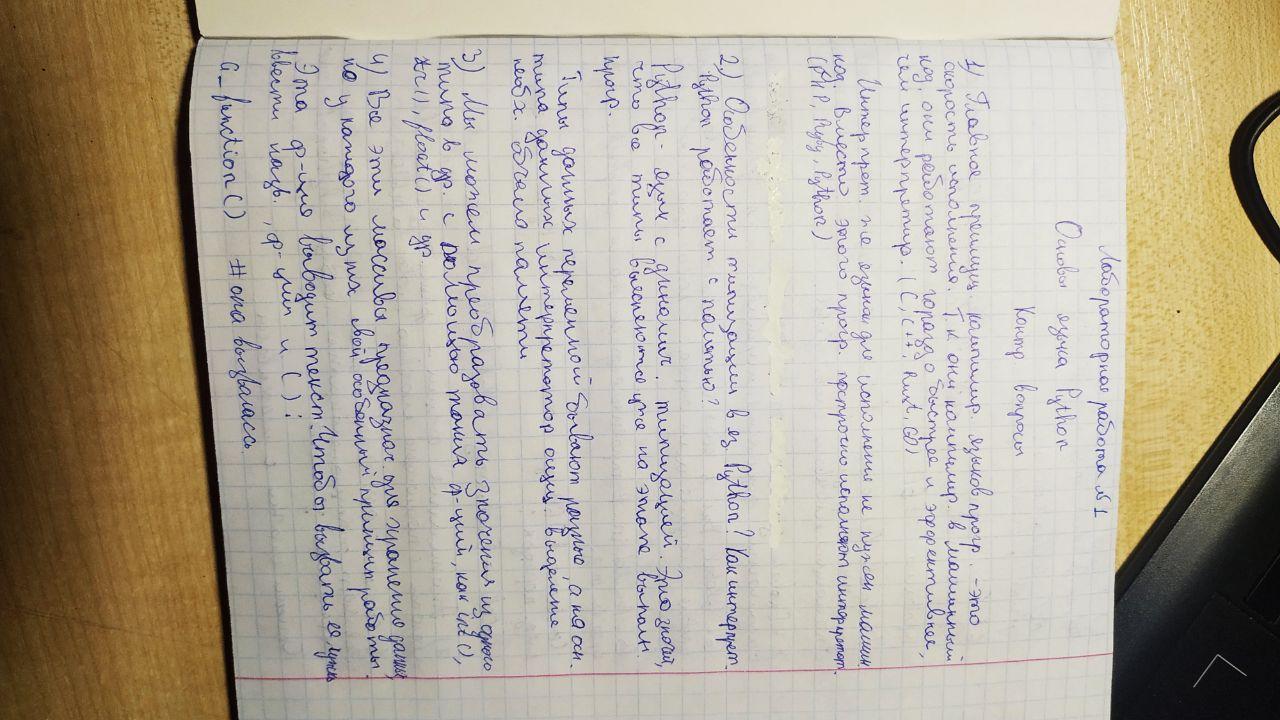 Лабораторная работа №1
Основы языка Python
Контр вопросы
1) Главное преимущ. компилир. языков прогр. - это
скорость исполнения. Т.к они компилир. в машинный
код, они работают гораздо быстрее и эффективнее,
чем интерпретир. (C, C++, Rust, Go)
Интерпрет. -е языки для исполнения не нужен машин
код. Вместо этого прогр. построчно исполняют интерпретат.
(PHP, Ruby, Python)
2) Особенности типизации в яз Python? Как интерпрет.
Python работает с памятью?
Python - язык с динамич. типизацией. Это значит,
что все типы выясняются уже на этапе выполн.
прогр.
Типы данных переменной бывают разные, а на осн.
типа данных интерпретатор оцен. выделение
необх. объема памяти
3) Мы можем преобразовать значения из одного
типа в др. с помощью таких ф-ций, как int(),
str(), float() и др.
4) Все эти массивы предназнач. для хранения данных,
но у каждого из них свой особенный принцип работы.
Эта ф-ия выводит текст. Чтобы вызвать ее нужно
ввести назв. ф-ции и ( ):
a_function() #она вызвалась